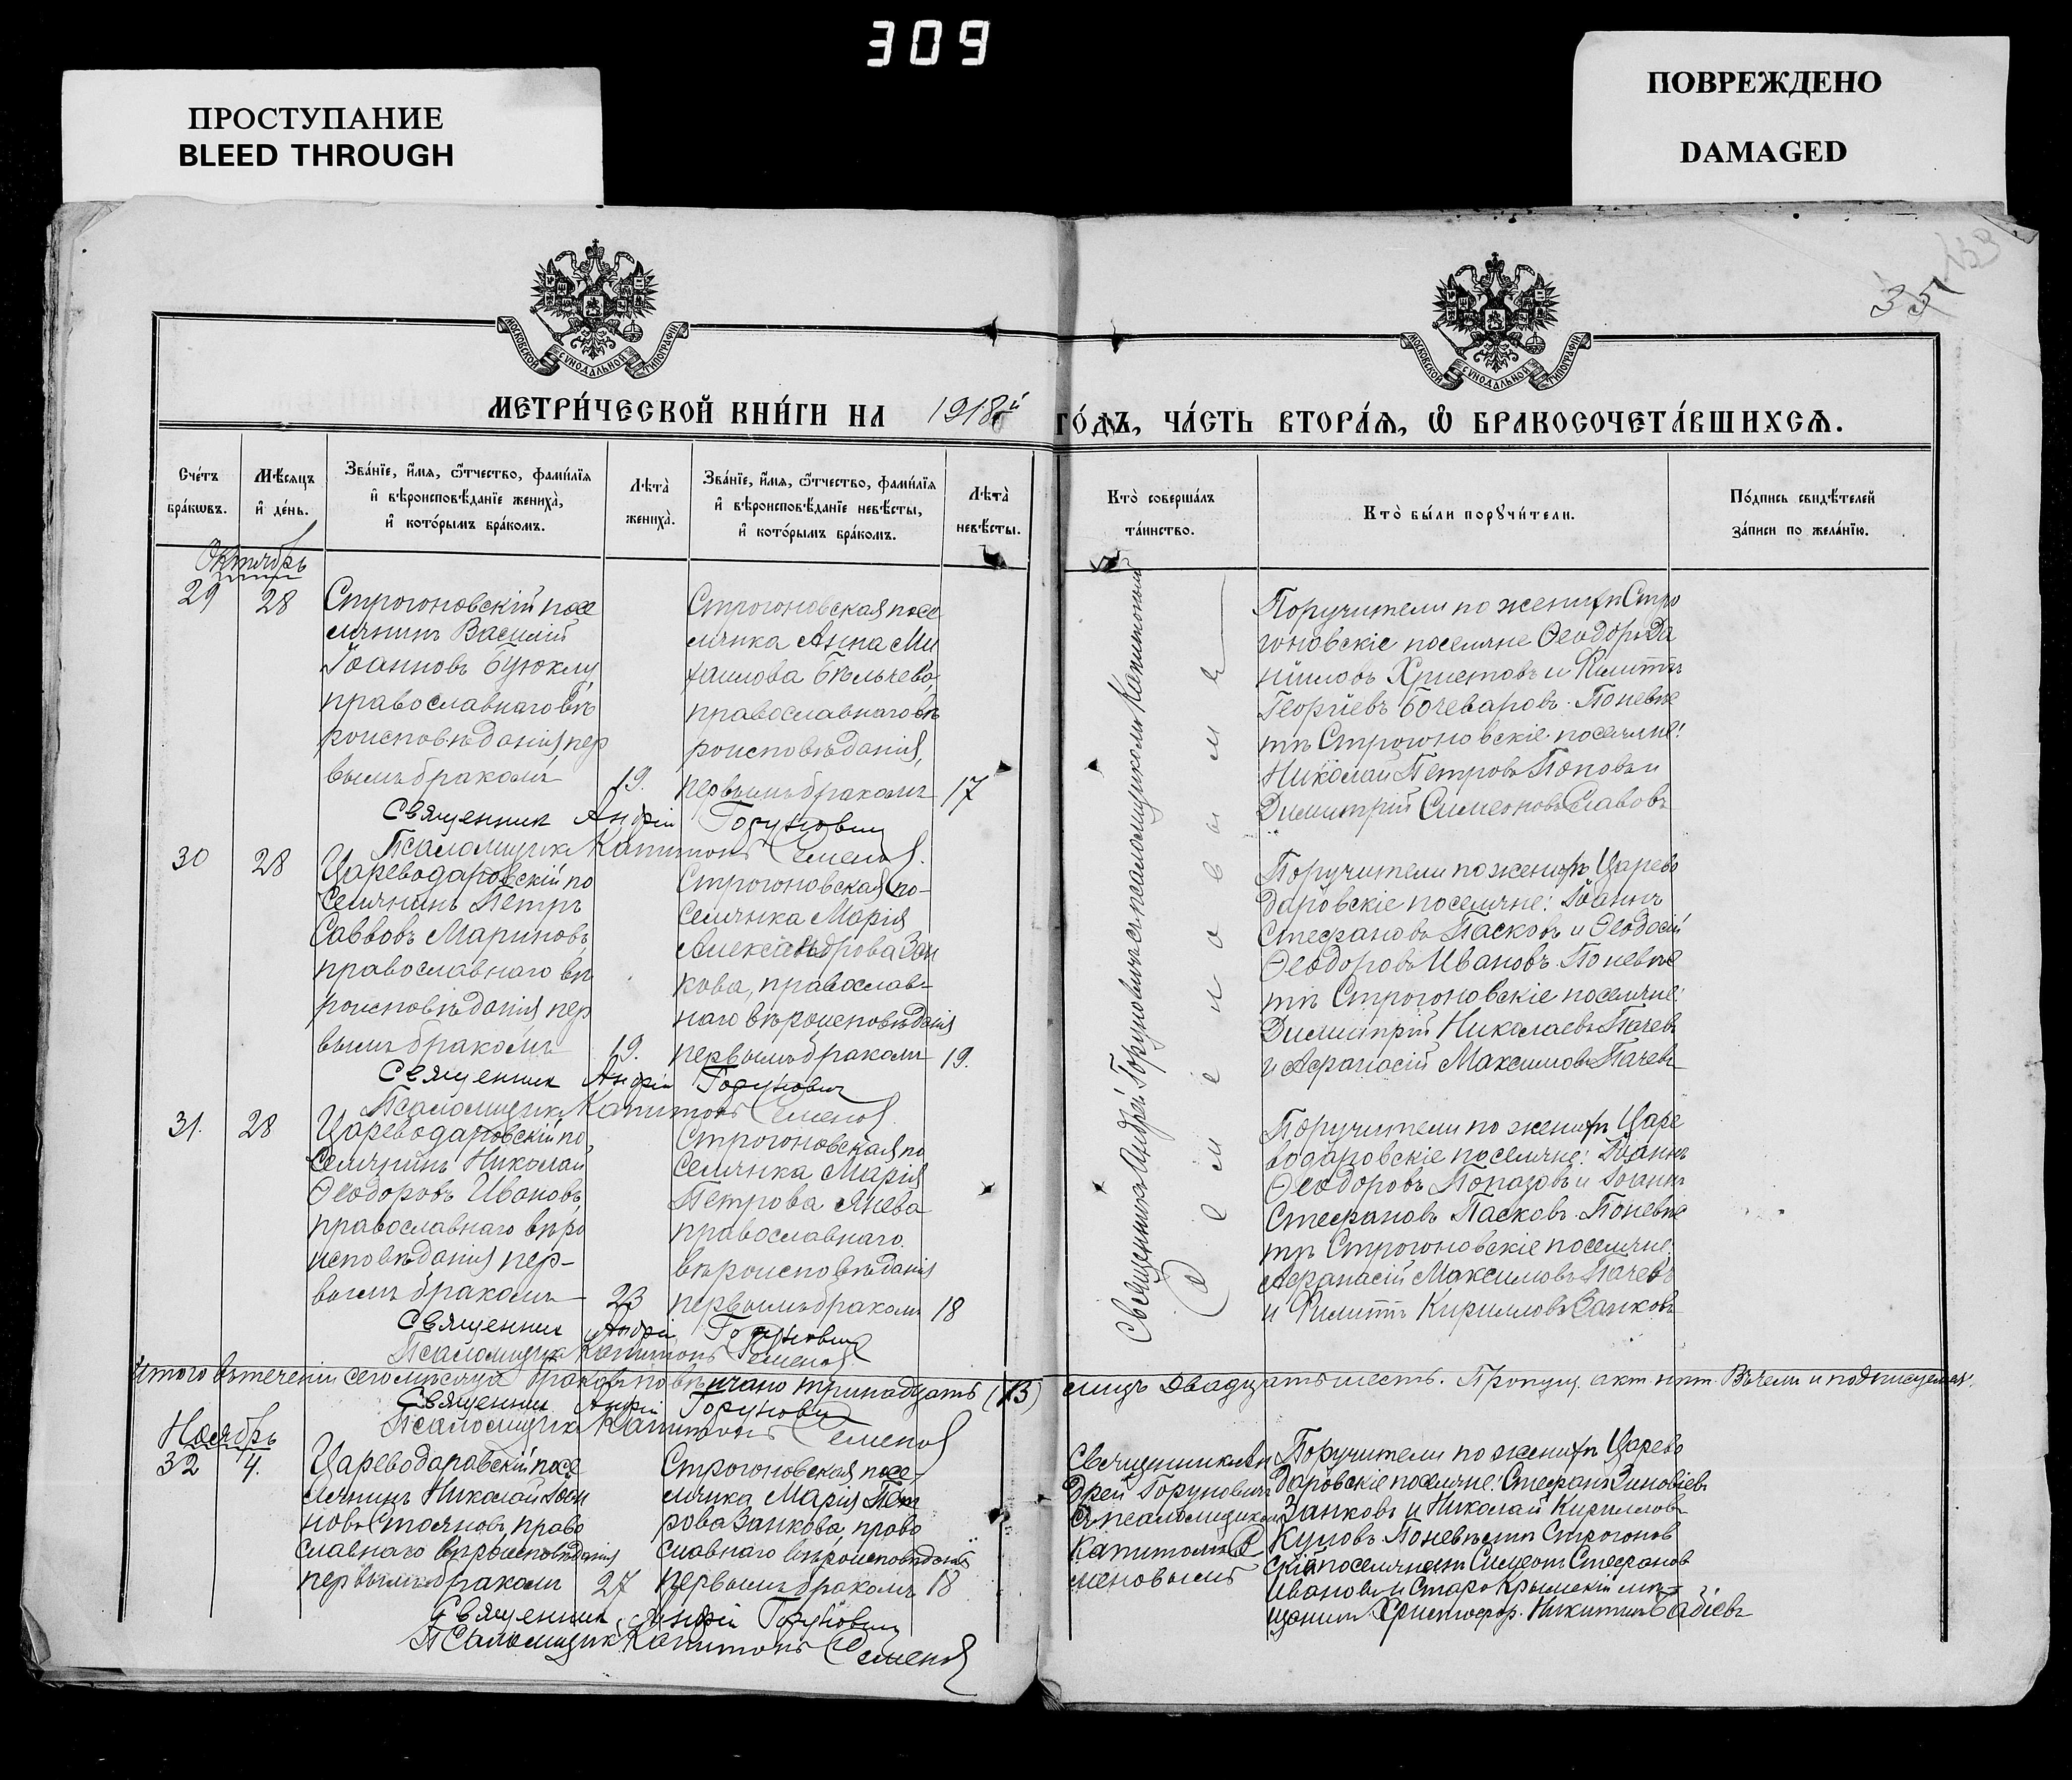 309
ПРОСТУПАНИЕ
BLEED THROUGH
ПОВРЕЖДЕНО
DAMAGED
МОСКОВСКОЙ СѴНОДАЛЬНОЙ ТИПОГРАФІИ
МОСКОВСКОЙ СѴНОДАЛЬНОЙ ТИПОГРАФІИ
35
МЕТРИ́ЧЕСКОЙ КНИ́ГИ НА 1918й ГО́ДЪ, ЧА́СТЬ ВТОРА́Я, Ѡ҆ БРАКОСОЧЕТА́ВШИХСЯ.
Сче́тъ
бра́кѡвъ.
Мѣ́сяцъ
и҆ де́нь.
Зва́нїе, и҆́мя, ѻ҆́тчество, фами́лїя
и҆ вѣроисповѣ́данїе жениха̀,
и҆ кото́рымъ бра́комъ.
Лѣта̀
жениха̀.
Зва́нїе, и҆́мя, ѻ҆́тчество, фами́лїя
и҆ вѣроисповѣ́данїе невѣ́сты,
и҆ кото́рымъ бра́комъ.
Лѣта̀
невѣ́сты.
Кто̀ соверша́лъ
та́инство.
Кто̀ бы́ли порꙋчи́тели.
По́дпись свидѣ́телей
за́писи по жела́нїю.
Октябрь
29
28
Строгоновскій посе
лянинъ Василій
Іоанновъ Буюклу,
православнаго вѣ
роисповѣданія, пер
вымъ бракомъ
19.
Строгоновская посе
лянка Анна Ми
хаилова Бѣльчева,
православнаго вѣ
роисповѣданія,
первымъ бракомъ
17
Священникъ Андрей Горуновичъ съ псаломщикомъ Капитономъ
Семеновымъ
Поручители по женихѣ Стро
гоновскіе поселяне Ѳеодоръ Да
ніиловъ Христовъ и Филиппъ
Георгіевъ Бочеваровъ. По невѣс
тѣ Строгоновскіе поселяне:
Николай Петровъ Поповъ и
Димитрій Симеоновъ Славовъ
Священник Андрій Горунович
Псаломщикъ Капитонъ Семенов.
30
28
Цареводаровскій по
селянинъ Петръ
Саввовъ Мариновъ,
православнаго вѣ
роисповѣданія пер
вымъ бракомъ
19.
Строгоновская по-
селянка Марія
Александрова Зан
кова, православ-
наго вѣроисповѣданія
первымъ бракомъ
19.
Поручители по женихѣ Царево
даровскіе поселяне: Іоаннъ
Стефановъ Пасковъ и Ѳеодосій
Ѳеодоровъ Ивановъ. По невѣс
тѣ Строгоновскіе поселяне:
Димитрій Николаевъ Пачевъ
и Афанасій Максимовъ Пачевъ
Священник Андрій Горунович
Псаломщикъ Капитонъ Семенов.
31.
28
Цареводаровскій по
селянинъ Николай
Ѳеодоровъ Ивановъ,
православнаго вѣро
исповѣданія пер-
вымъ бракомъ
23
Строгоновская по
селянка Марія
Петрова Янева
православнаго
вѣроисповѣданія
первымъ бракомъ
18
Поручители по женихѣ Царе
водаровскіе поселяне: Іоаннъ
Ѳеодоровъ Попазовъ и Іоаннъ
Стефановъ Пасковъ. По невѣс
тѣ Строгоновскіе поселяне:
Афанасій Максимовъ Пачевъ
и Филиппъ Кирилловъ Занковъ
Священник Андрій Горунович
Псаломщикъ Капитонъ Семенов.
Итого въ теченіи сего мѣсяца браковъ повѣнчано тринадцать (13) лицъ двадцать шесть. Пропущ. акт. нѣт. Въ чемъ и подписуемся.
Священник Андрій Горунович
Псаломщикъ Капитонъ Семенов
Ноябрь
32
4.
Цареводаравскій посе
лянинъ Николай Іоан
новъ Стояновъ, право
славнаго вѣроисповѣданія
первымъ бракомъ
27
Строгоновская посе-
лянка Марія Пет
рова Занкова, право
славнаго вѣроисповѣданія
первымъ бракомъ
18
Священникъ Ан
дрей Горуновичъ
съ псаломщикомъ
Капитономъ Се
меновымъ
Поручители по женихѣ Царево
даровскіе поселяне: Стефанъ Зиновіевъ
Занковъ и Николай Кирилловъ
Куцовъ. По невѣстѣ Строгонов
скій поселянинъ Симеонъ Стефановъ
Ивановъ и Старо Крымскій мѣ-
щанинъ Христофор. Никитинъ Бабіевъ
Священник Андрій Горунович
Псаломщикъ Капитонъ Семенов